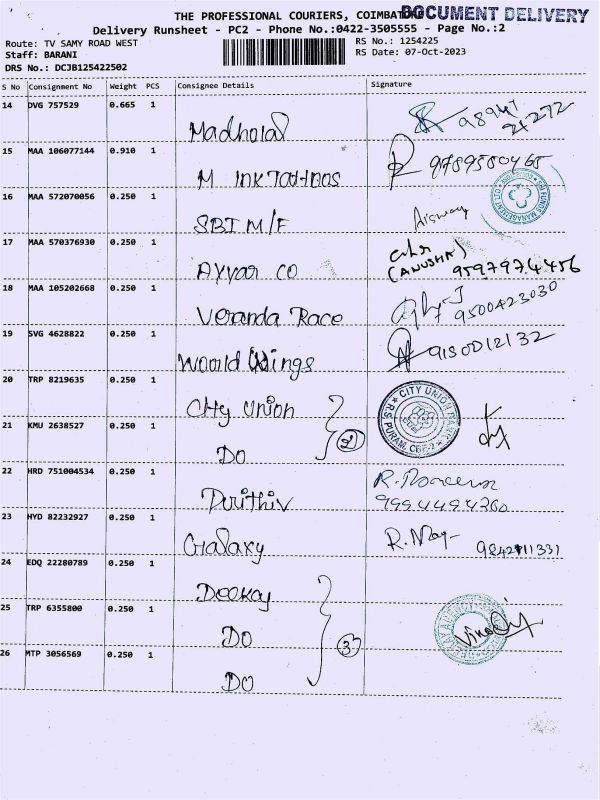 THE PROFESSIONAL COURIERS, COIMBATORE
DOCUMENT DELIVERY
Delivery Runsheet - PC2 - Phone No.:0422-3505555 - Page No.:2
Route: TV SAMY ROAD WEST
RS No.: 1254225
Staff: BARANI
RS Date: 07-Oct-2023
DRS No.: DCJB125422502
S No Consignment No Weight PCS Consignee Details Signature
14 DVG 757529 0.665 1
98947
24272
15 MAA 106077144 0.910 1
M INK Tattoos 9789580468
16 MAA 572070056 0.250 1
SBI M/F Aiswary
17 MAA 570376930 0.250 1
Ayyar CO (ANUSHA) 9597974456
18 MAA 105202668 0.250 1
Veranda Race 9500423030
19 SVG 4628822 0.250 1
World Wings 9150012132
20 TRP 8219635 0.250 1
City Union
CITY UNION BANK
R.S. PURAM, CBE-2
21 KMU 2638527 0.250 1
DO 2
22 HRD 751004534 0.250 1
Pirithiv 9994494360
23 HYD 82232927 0.250 1
Galaxy 9842111331
24 EDQ 22280789 0.250 1
Deekay
25 TRP 6355800 0.250 1
DO 3
26 MTP 3056569 0.250 1
DO